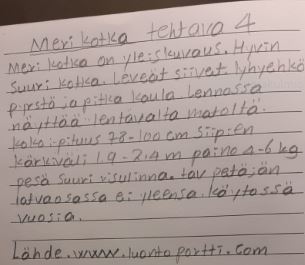 Merikotka tehtävä 4
Merikotka on yleiskuvaus. Hyvin
suuri kotka. Leveät siivet lyhyehkö
pyrstö ja pitkä kaula Lennossa
näyttää lentävältä matolta.
koko: pituus 78-100 cm siipien
kärkiväli 1.9-2.4 m paino 4-6 kg
pesä suuri risulinna. tav petäjän
latvaosassa ei yleensä käytössä
vuosia.
Lähde. www.luontoportti.com